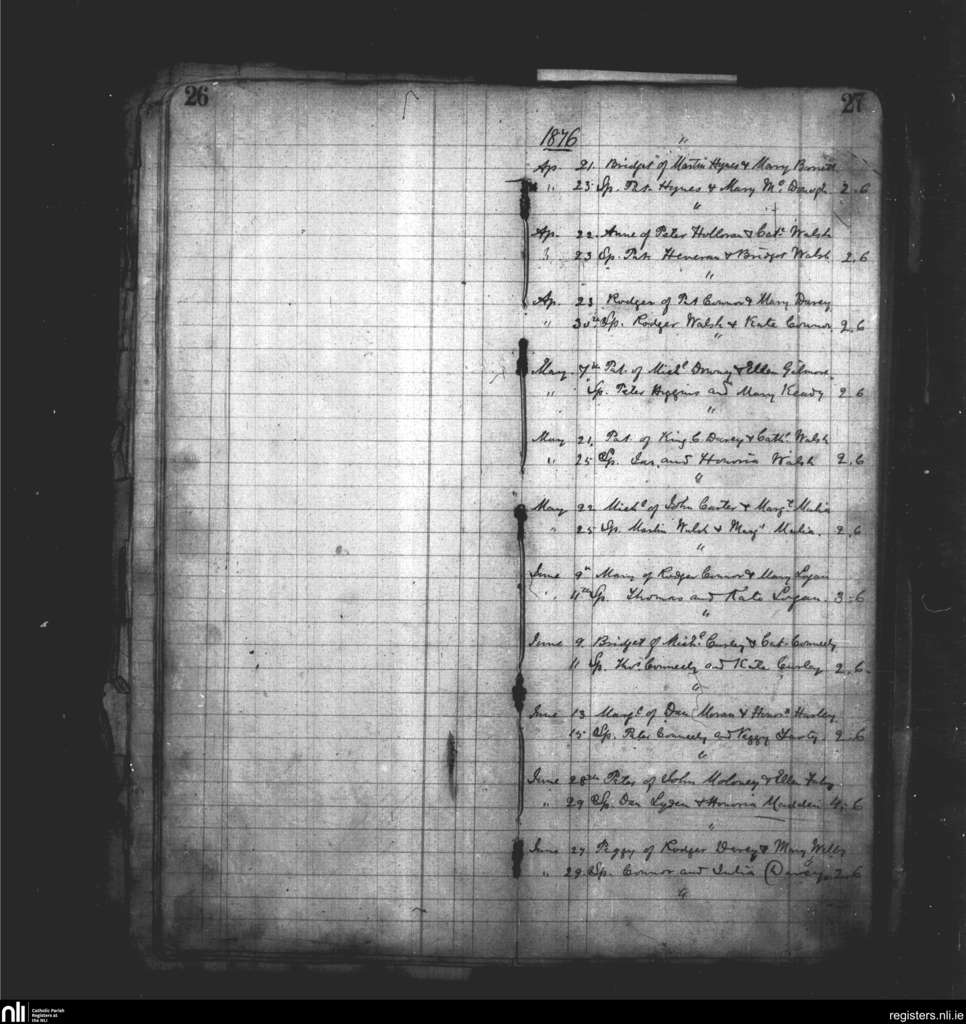 26
27
1876
"
Ap. 21. Bridget of Martin Hynes & Mary
" 23 Sp. Pat. Hynes & Mary McDonagh 2.6
"
Ap. 22. Anne of Peter Holloran & Cath. Walsh
" 23 Sp. Pat. Heneran & Bridget Walsh 2.6
"
Ap. 23 Rodger of Pat Connor & Mary Darcy
" 30th Sp. Rodger Walsh & Kate Connor 2.6
"
May 7th Pat. of Michl Downey & Ellen Gilmore.
" Sp. Peter Higgins and Mary Keady 2 6
"
May 21. Pat. of King C. Darcy & Cath. Walsh
" 25 Sp. Jas. and Honoria Walsh 2.6
"
May 22 Michl of John Carter & Margt Malia
" 25 Sp. Martin Walsh & Margt Malia. 2.6
"
June 9th Mary of Rodger Connor & Mary Logan
" 11th Sp. Thomas and Kate Logan 3-6
"
June 9. Bridget of Michl Curley & Cat. Conneely
11 Sp. Thos Conneely and Kate Curley 2.6.
"
June 13 Margt of Dan Moran & Honora
15 Sp. Peter Conneely and Peggy 2.6
"
June 28th Peter of John Moloney & Ellen
" 29 Sp. Dan Lyden & Honoria Madden 4.6
"
June 27 Peggy of Rodger Darcy & Mary
" 29. Sp. Connor and Julia (Darcy) 2.6
"
nli
Catholic Parish
Registers at
the NLI
registers.nli.ie